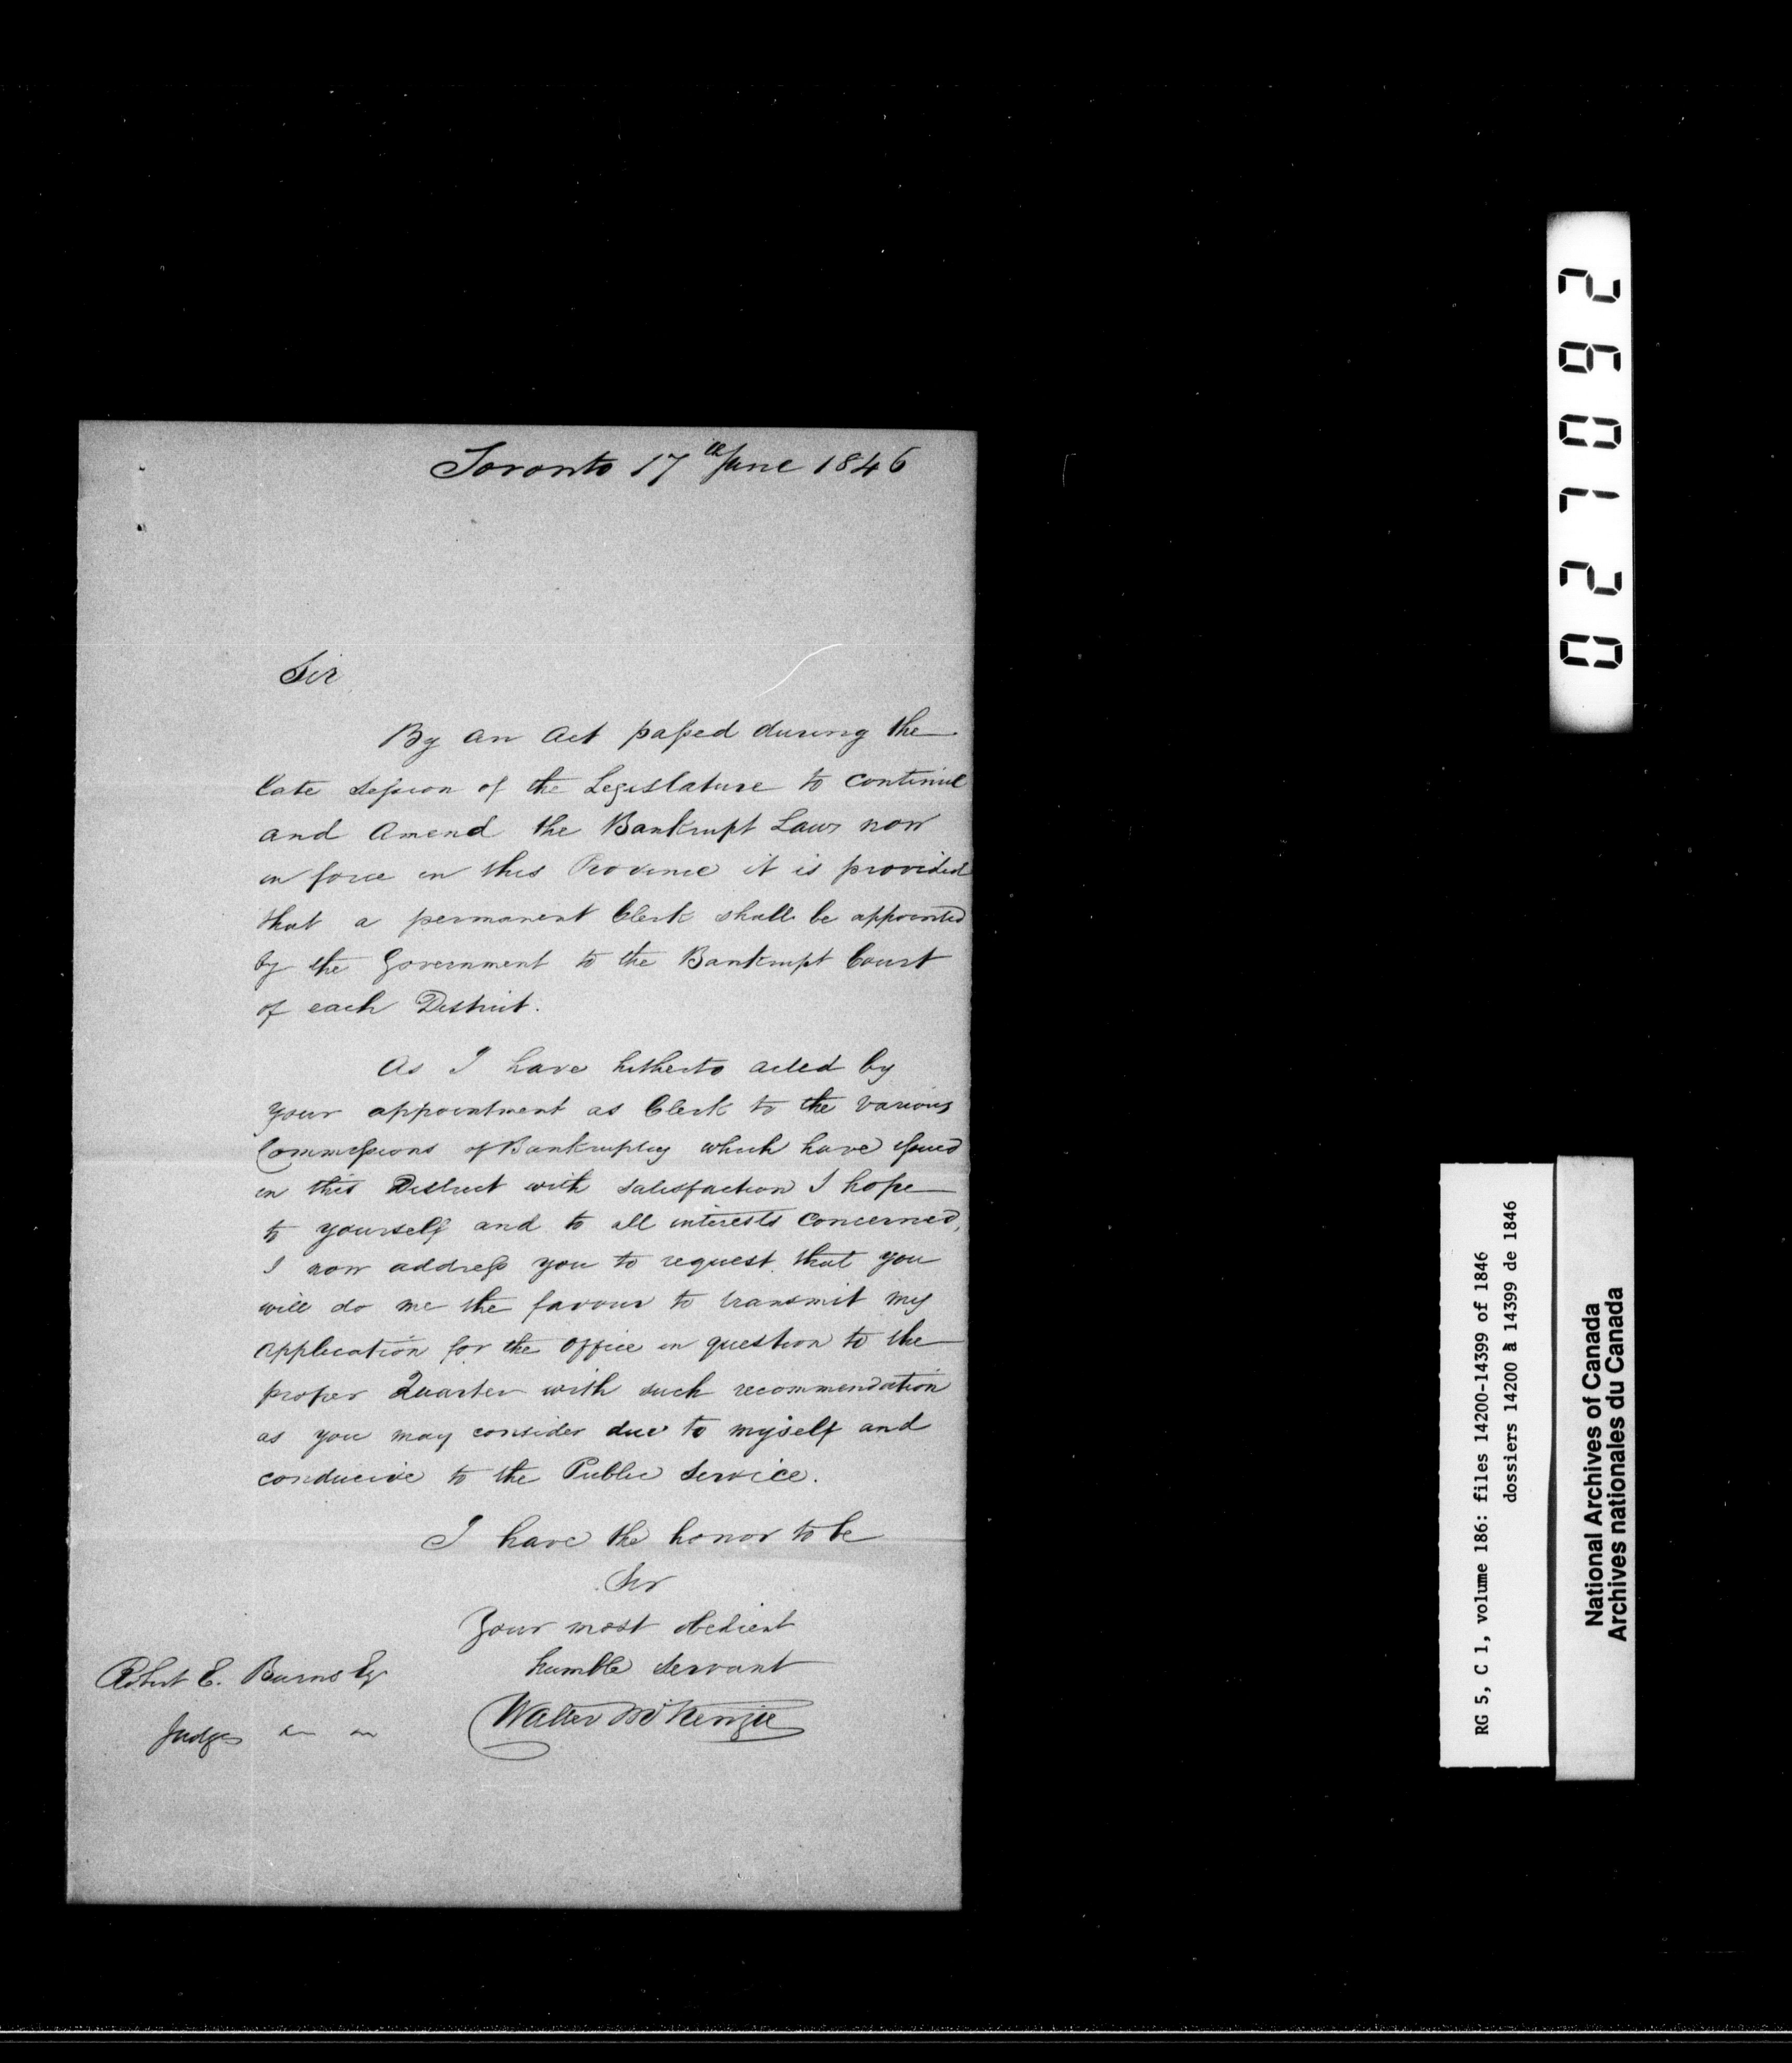 Toronto 17th June 1846
Sir
By an Act passed during the
late Session of the Legislature to continue
and Amend the Bankrupt Laws now
in force in this Province it is provided
that a permanent Clerk shall be appointed
by the Government to the Bankrupt Court
of each District.
As I have hitherto acted by
your appointment as Clerk to the various
Commissions of Bankruptcy which have issued
in this District with satisfaction I hope
to yourself and to all interests concerned,
I now address you to request that you
will do me the favour to transmit my
application for the Office in question to the
proper Quarter with such recommendation
as you may consider due to myself and
conducive to the Public Service.
I have the honor to be
Sir
Your most obedient
humble servant
Walter McKenzie
Robert E. Burns Esqr
Judge
027092
RG 5, C 1, volume 186: files 14200-14399 of 1846
dossiers 14200 à 14399 de 1846
National Archives of Canada
Archives nationales du Canada